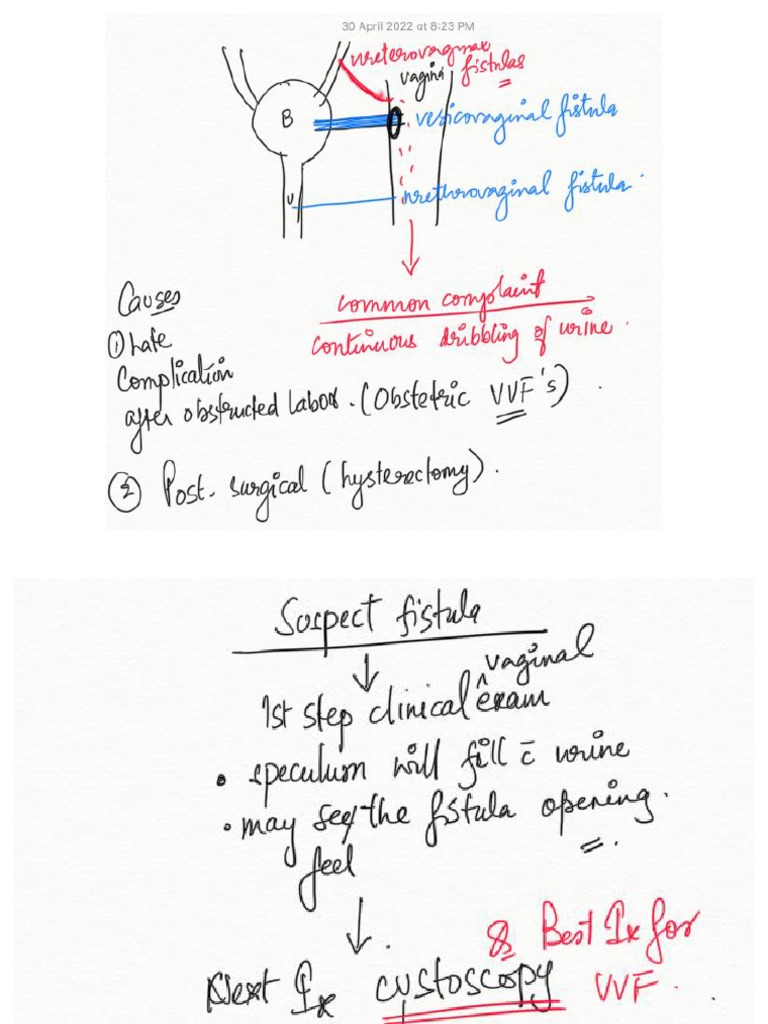 30 April 2022 at 8:23 PM
ureterovaginal
fistulas
vagina
B
vesicovaginal fistula
U
urethrovaginal fistula.
common complaint
continuous dribbling of urine.
Causes
① Late
Complication
after obstructed labor. (Obstetric VVF's).
② Post-surgical (hysterectomy).
Suspect fistula
vaginal
1st step clinical ^ exam
• speculum will fill c̄ urine
• may see/the fistula opening.
feel
& Best Ix for
Next Ix cystoscopy VVF.